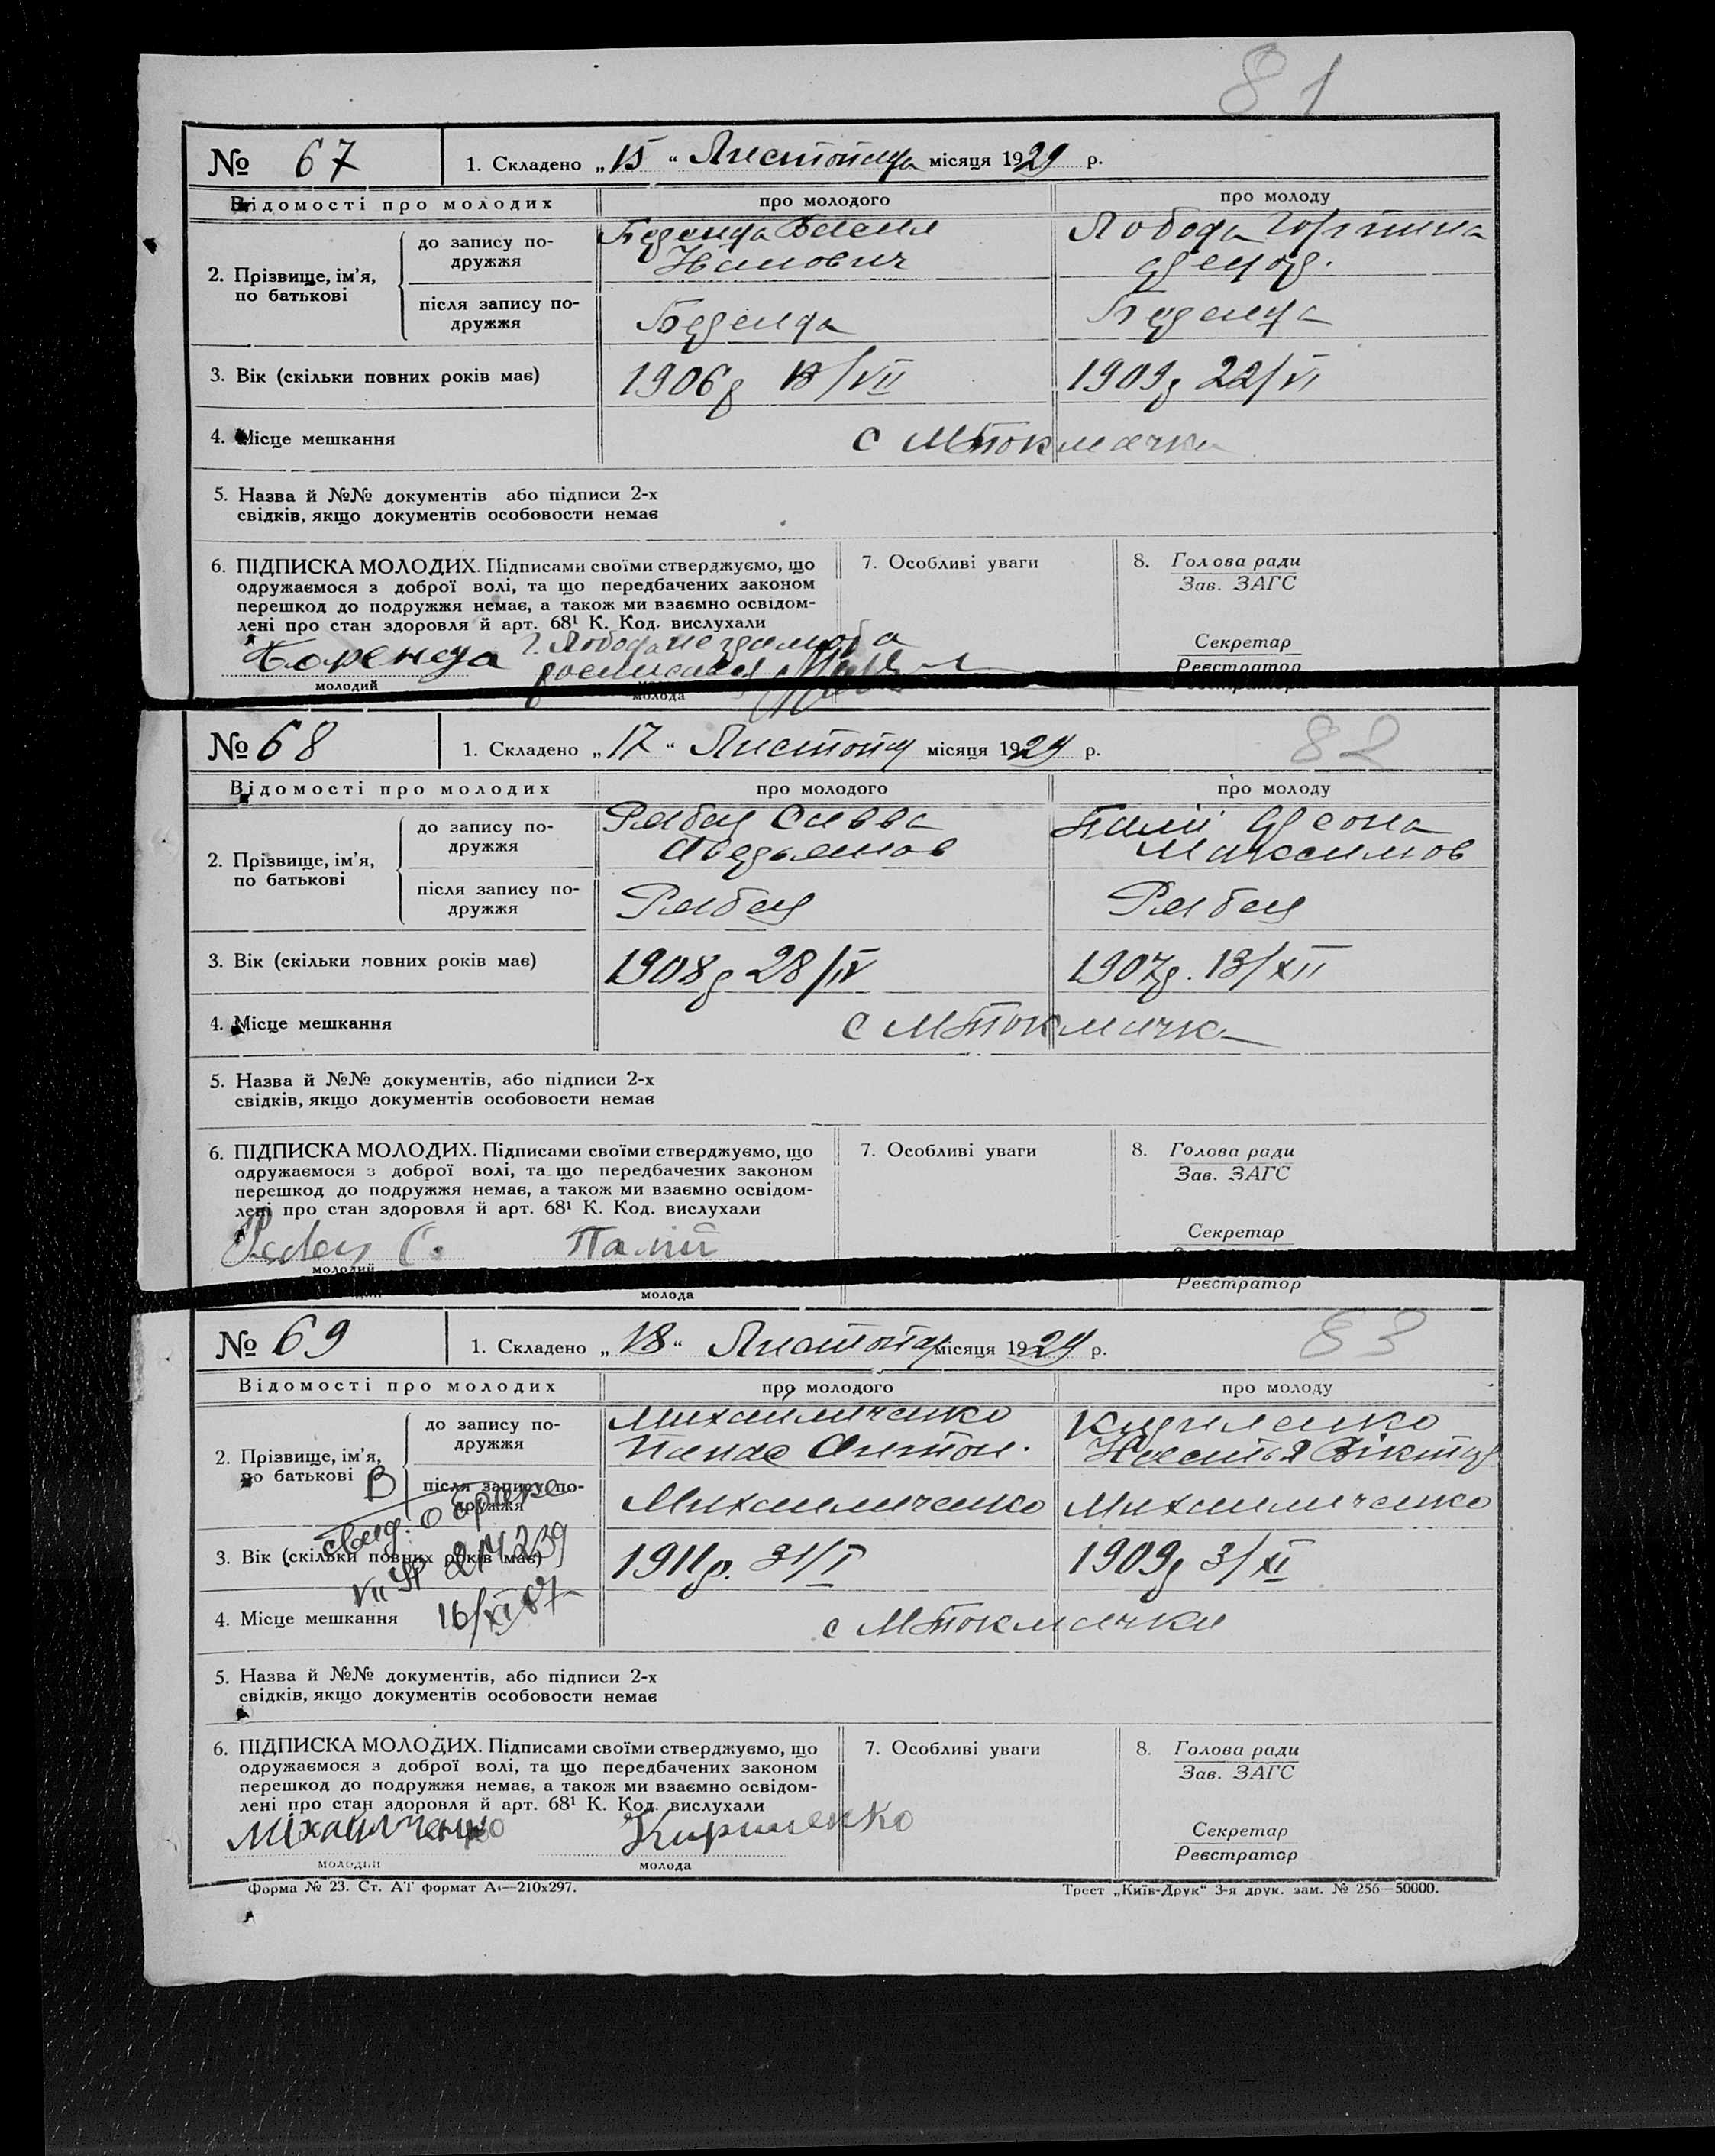 81
№ 67 1. Складено „15“ Листопада місяця 1929 р.
Відомості про молодих про молодого про молоду
2. Прізвище, ім'я, по батькові
до запису подружжя
Василь Лобода
Іванович
після запису по-
дружжя
3. Вік (скільки повних років має) 1906р 13/VII 1909р 22/VI
4. Місце мешкання с МТокмачка
5. Назва й №№ документів або підписи 2-х
свідків, якщо документів особовости немає
6. ПІДПИСКА МОЛОДИХ. Підписами своїми стверджуємо, що 7. Особливі уваги 8. Голова ради
одружаємося з доброї волі, та що передбачених законом Зав. ЗАГС
перешкод до подружжя немає, а також ми взаємно освідом-
лені про стан здоровля й арт. 68¹ К. Код. вислухали
Г. Лобода Секретар
молодий молода Реєстратор
№ 68 1. Складено „17“ Листопад місяця 1929 р. 82
Відомості про молодих про молодого про молоду
2. Прізвище, ім'я,
по батькові
до запису по-
дружжя
Рябец Савва Палій
Максимов
після запису по-
дружжя
Рябец Рябец
3. Вік (скільки повних років має) 1908р 28/IV 1907р. 13/XII
4. Місце мешкання с МТокмачка
5. Назва й №№ документів, або підписи 2-х
свідків, якщо документів особовости немає
6. ПІДПИСКА МОЛОДИХ. Підписами своїми стверджуємо, що 7. Особливі уваги 8. Голова ради
одружаємося з доброї волі, та що передбачених законом Зав. ЗАГС
перешкод до подружжя немає, а також ми взаємно освідом-
лені про стан здоровля й арт. 68¹ К. Код. вислухали
Палій Секретар
молодий молода Реєстратор
№ 69 1. Складено „18“ Листопад місяця 1929 р. 83
Відомості про молодих про молодого про молоду
2. Прізвище, ім'я,
по батькові
до запису по-
дружжя
Михайличенко Кириленко
Панас Антон. Віктор
після запису по-
дружжя
Михайличенко Михайличенко
В
свид. о браке
3. Вік (скільки повних років має) 1911р. 31/I 1909р 3/XI
4. Місце мешкання 16/XI 87 с МТокмачка
5. Назва й №№ документів, або підписи 2-х
свідків, якщо документів особовости немає
6. ПІДПИСКА МОЛОДИХ. Підписами своїми стверджуємо, що 7. Особливі уваги 8. Голова ради
одружаємося з доброї волі, та що передбачених законом Зав. ЗАГС
перешкод до подружжя немає, а також ми взаємно освідом-
лені про стан здоровля й арт. 68¹ К. Код. вислухали
Міхайличенко Секретар
молодий молода Реєстратор
Форма № 23. Ст. АТ формат А₄—210х297. Трест „Київ-Друк“ 3-я друк. зам. № 256—50000.